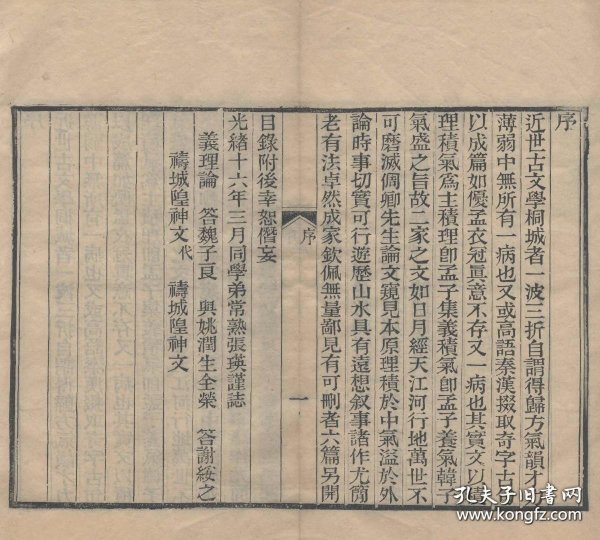 序
近世古文學桐城者一波三折自謂得歸方氣韻才
薄弱中無所有一病也又或高語秦漢掇取奇字古
以成篇如優孟衣冠眞意不存又一病也其實文以
理積氣爲主積理卽孟子集義積氣卽孟子養氣韓子
氣盛之旨故二家之文如日月經天江河行地萬世不
可磨滅倜卿先生論文窺見本原理積於中氣溢於外
論時事切實可行遊歷山水具有遠想叙事諸作尤簡
老有法卓然成家欽佩無量鄙見有可刪者六篇另開
序
一
目錄附後幸恕僭妄
光緒十六年三月同學弟常熟張瑛謹誌
義理論 答魏子良 與姚潤生全榮 答謝綏之
禱城隍神文代 禱城隍神文
孔夫子旧书网
www.kongfz.com